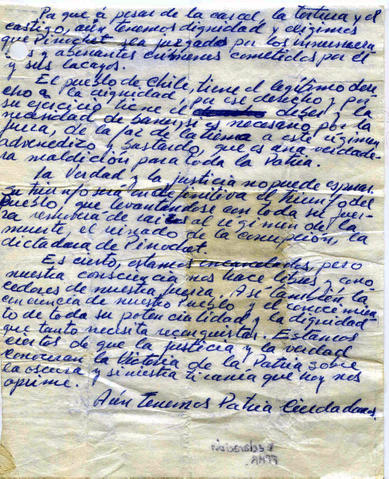 Pa que á pesar de la carcel la tortura y el
castigo, aún tenemos dignidad y exigimos
que Pinochet sea juzgado por los innumera
les y aberrantes crimenes cometidos por él
y sus lacayos.
El pueblo de Chile, tiene el legítimo dere
cho a la dignidad, por ese derecho y por
su ejercicio tiene el deber y la
necesidad de barrer si es necesario por la
fuerza, de la faz de la tierra a este régimen
advenedizo y bastardo, que es una verdade
ra maldición para toda la Patria.
La Verdad y la justicia no puede esperar
su forma definitiva de triunfo del
Pueblo, que levantandose con toda su fuer
za removera de raiz el régimen de la
muerte, el reinado de la corrupción, la
dictadura de Pinochet.
Es cierto, estamos encarcelados, pero
nuestra consciencia nos hace libres y cono
cedores de nuestra fuerza. Así también la
conciencia de nuestro Pueblo y conocimien
to de toda su potencialidad y la dignidad
que tanto necesita reconquistar. Estamos
ciertos de que la justicia y la verdad
conoceran la Victoria de la Patria sobre
la oscura y siniestra tiranía que hoy nos
oprime.
Aún Tenemos Patria Ciudadanos.
Declaración
FPMR